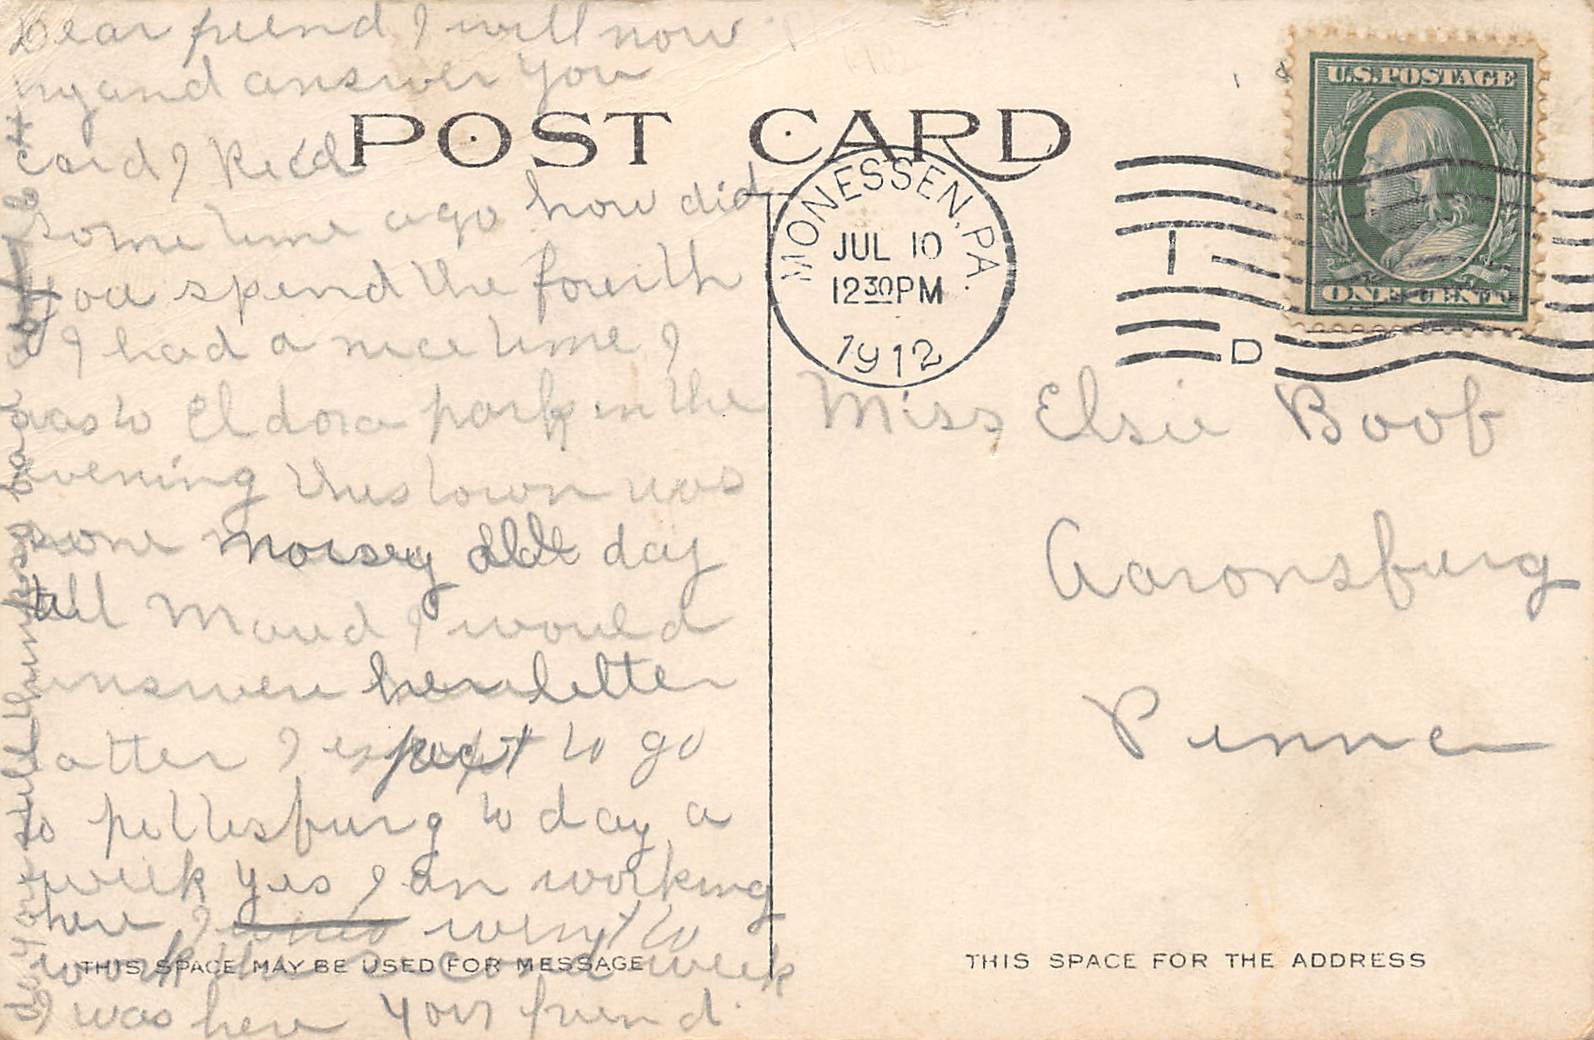 Dear friend I will now
try and answer you
card I Rec'd
some time ago how did
you spend the fourth
I had a nice time I
was to Eldora park in the
evening this town was
some noisey all day
tell Maud I would
answere her letter
latter I expect to go
to pittesburg to day a
week yes I an working
here I went to
work the second week
I was here Your friend
do you still thinks bad of
POST CARD
U.S. POSTAGE
ONE CENT
MONESSEN, PA.
JUL 10
12 30 PM
1912
1
D
Miss Elsie Boob
Aaronsburg
Penna
THIS SPACE MAY BE USED FOR MESSAGE
THIS SPACE FOR THE ADDRESS